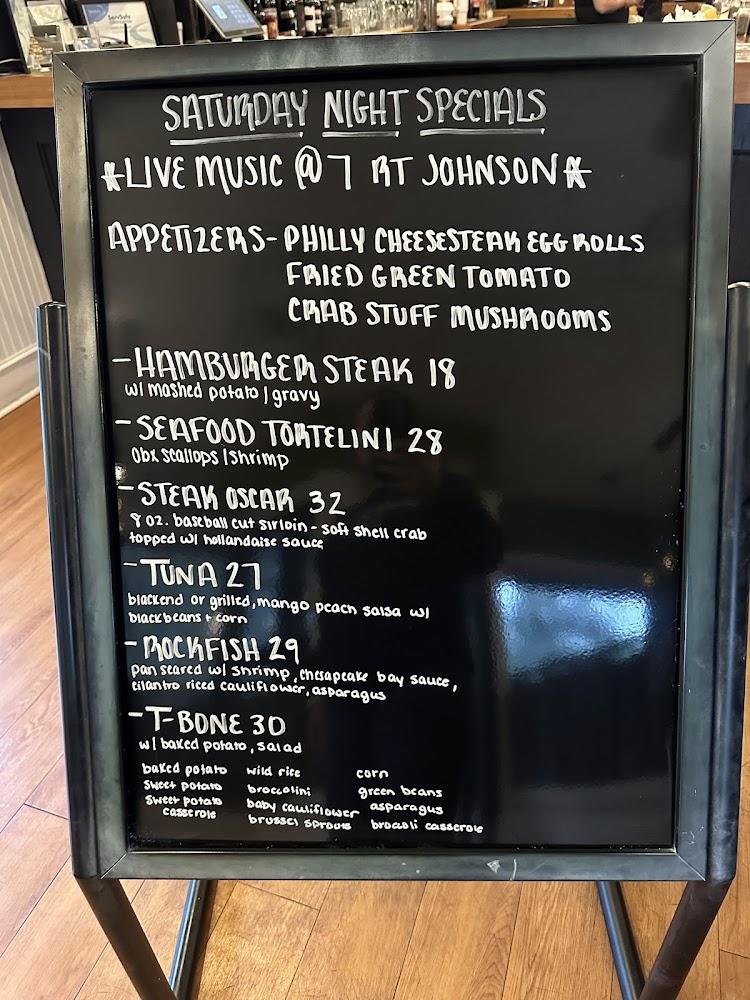 SATURDAY NIGHT SPECIALS
*LIVE MUSIC @ 7 RT JOHNSON*
APPETIZERS- PHILLY CHEESESTEAK EGG ROLLS
FRIED GREEN TOMATO
CRAB STUFF MUSHROOMS
- HAMBURGER STEAK 18
w/ mashed potato / gravy
- SEAFOOD TORTELINI 28
Obx scallops / shrimp
- STEAK OSCAR 32
8 oz. baseball cut sirloin - soft shell crab
topped w/ hollandaise sauce
- TUNA 27
blackend or grilled, mango peach salsa w/
blackbeans + corn
- ROCKFISH 29
pan seared w/ shrimp, chesapeake bay sauce,
cilantro riced cauliflower, asparagus
- T-BONE 30
w/ baked potato, salad
baked potato wild rice corn
sweet potato broccolini green beans
sweet potato baby cauliflower asparagus
casserole brussel sprouts broccoli casserole